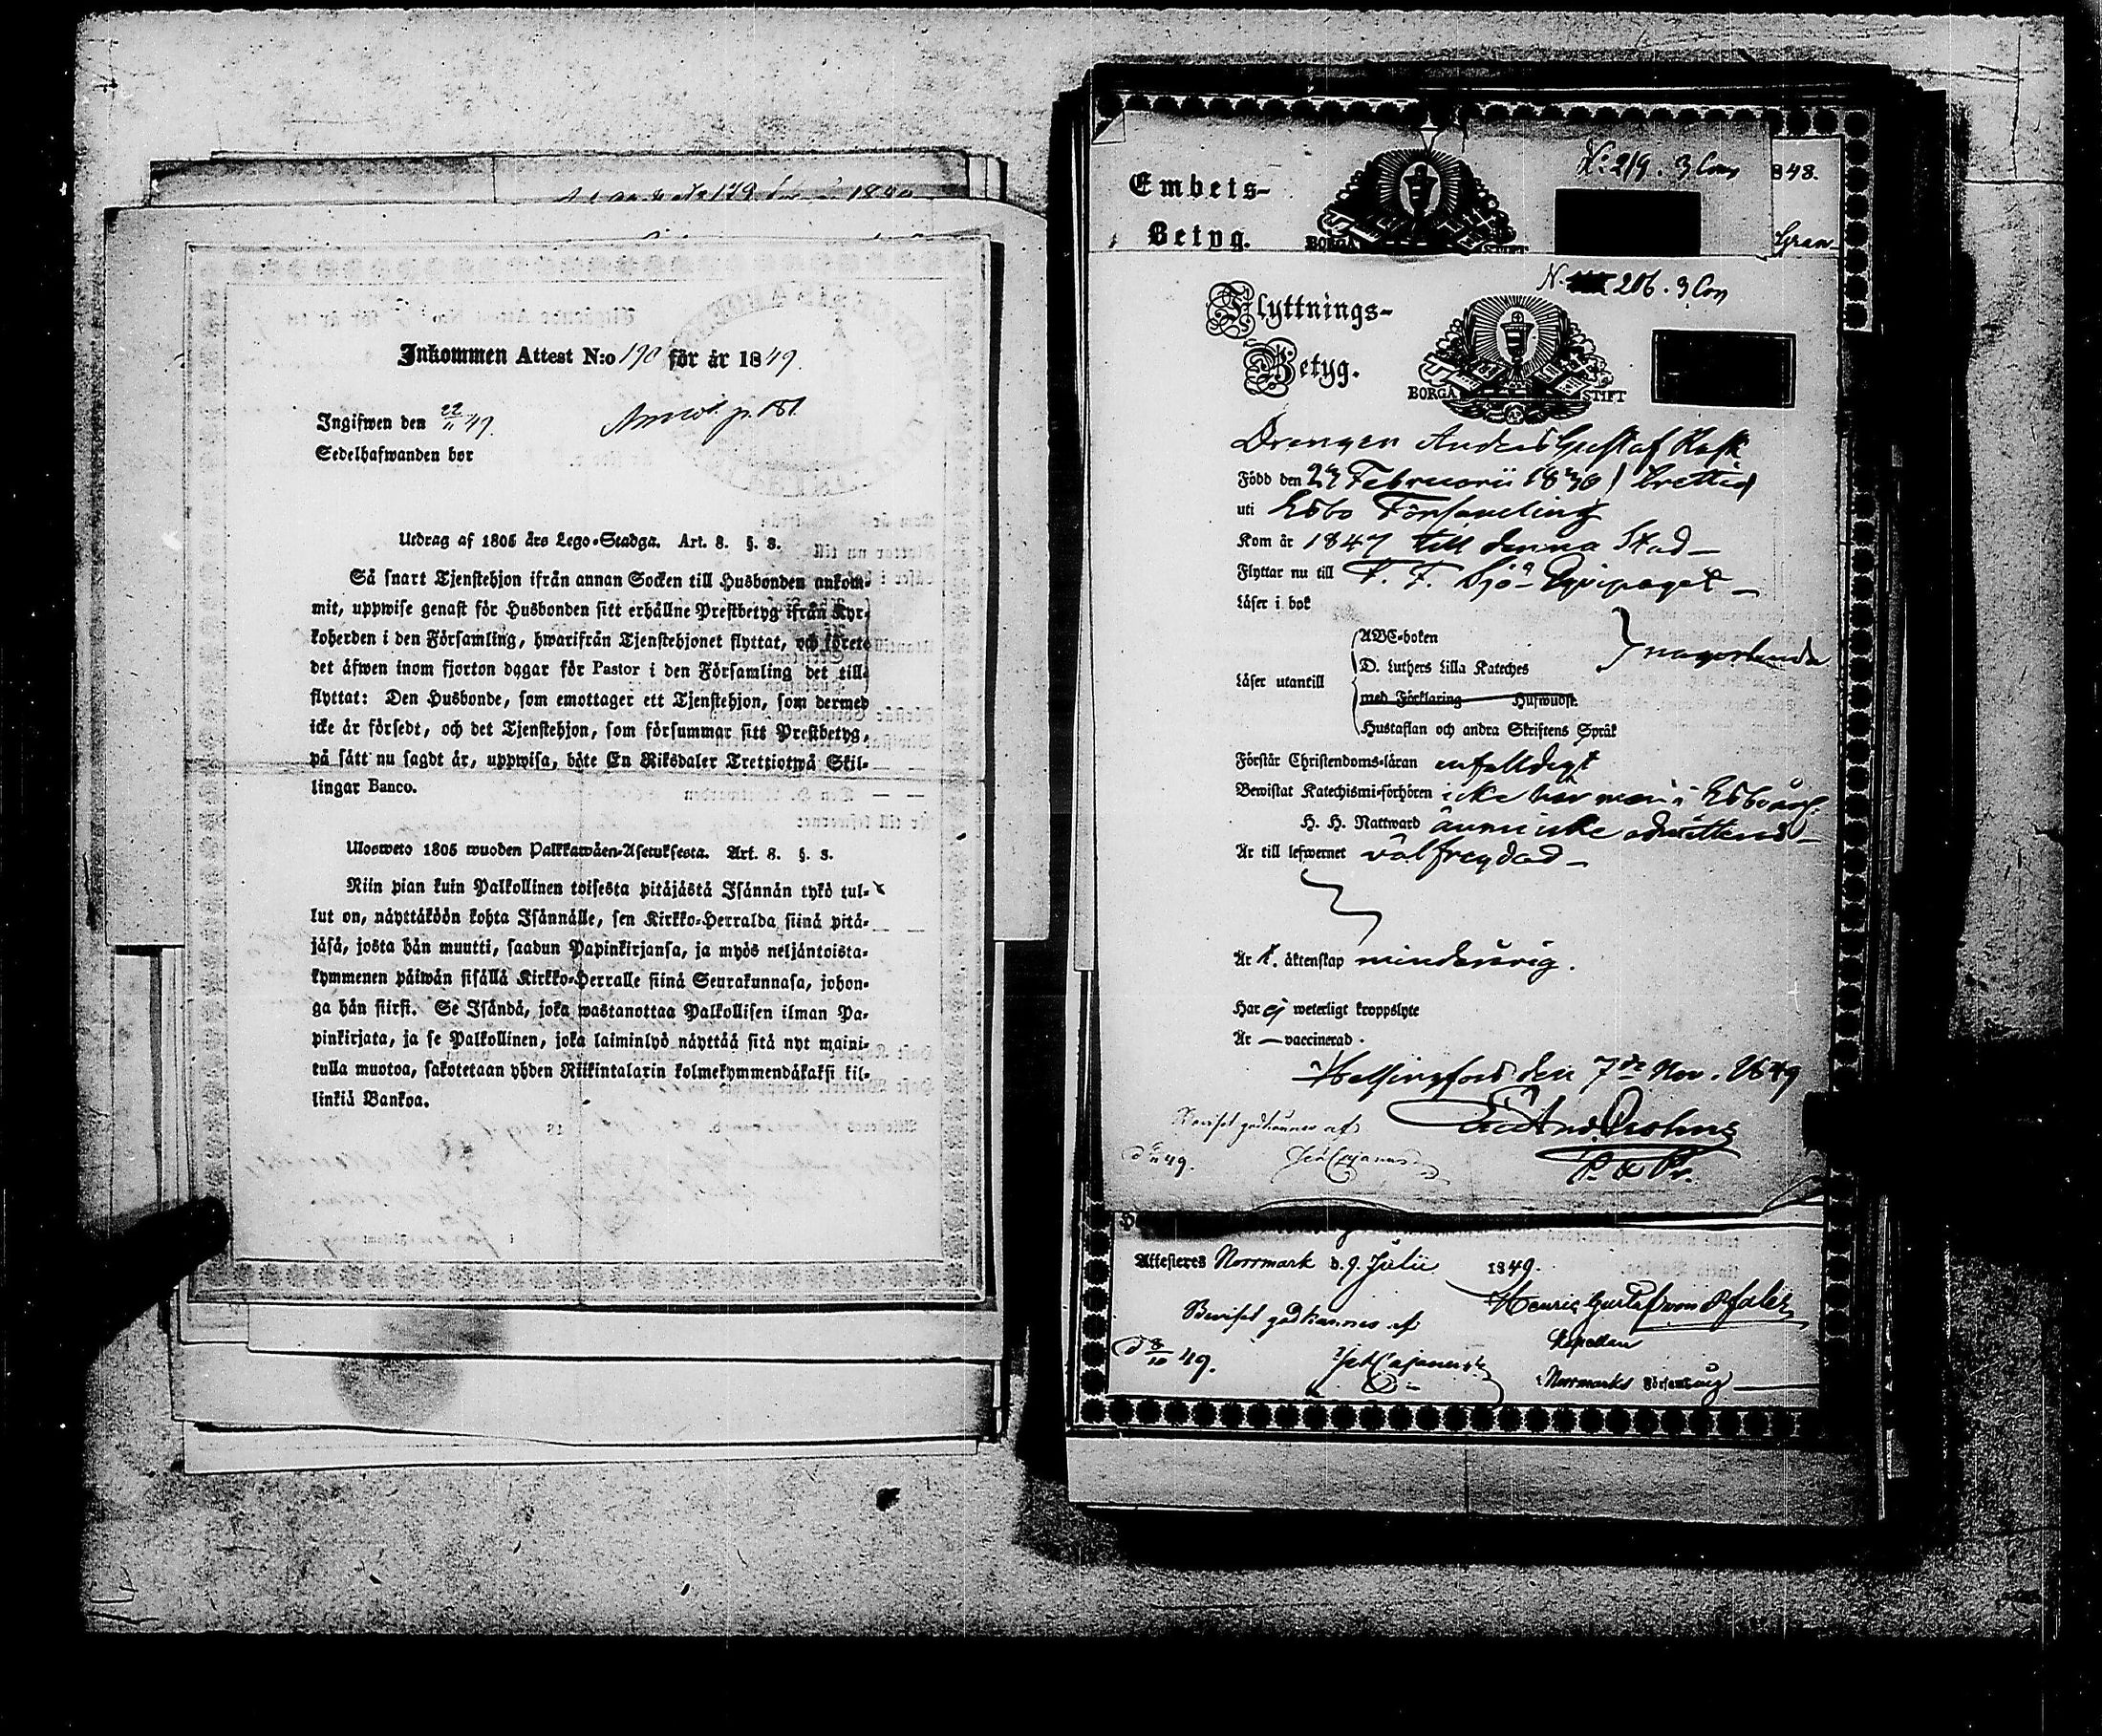 Inkommen Attest N:o 190 för år 1849.
Ingifwen den 22/11 49.
Sedelhafwanden bor
Utdrag af 1805 års Lego-Stadga. Art. 8. §. 3.
Så snart Tjenstehjon ifrån annan Socken till Husbonden ankom-
mit, uppwise genast för Husbonden sitt erhållne Prestbetyg ifrån Kyr-
koherden i den Församling, hwarifrån Tjenstehjonet flyttat, och förete
det äfwen inom fjorton dagar för Pastor i den Församling det till-
flyttat: Den Husbonde, som emottager ett Tjenstehjon, som dermed
icke är försedt, och det Tjenstehjon, som försummar sitt Prestbetyg,
på sätt nu sagdt är, uppwisa, böte En Riksdaler Trettiotwå Skil-
lingar Banco.
Ulosweto 1805 wuoden Palkkawäen-Asetuksesta. Art. 8. §. 3.
Niin pian kuin Palkollinen toisesta pitäjästä Isännän tykö tul-
lut on, näyttäköön kohta Isännälle, sen Kirkko-Herralda siinä pitä-
jäsä, josta hän muutti, saadun Papinkirjansa, ja myös neljäntoista-
kymmenen päiwän sisällä Kirkko-Herralle siinä Seurakunnasa, johon-
ga hän siirsi. Se Isändä, joka wastanottaa Palkollisen ilman Pa-
pinkirjata, ja se Palkollinen, joka laiminlyö näyttää sitä nyt maini-
tulla muotoa, sakotetaan yhden Riikintalarin kolmekymmendäkaksi kil-
linkiä Bankoa.
Embets-
Betyg.
N:219. 3 Con
848.
BORGÅ
Gran-
N. 206. 3 Con
Flyttnings-
Betyg.
BORGÅ STIFT
Drengen Anders Gustaf Rask
Född den 27 Februarii 1830
uti Esbo Församling
Kom år 1847 till denna Stad
Flyttar nu till F. F. Sjö Equipaget
Läser i bok
ABE-boken
D. Luthers Lilla Kateches
Läser utantill
med Förklaring Hufwudst.
Hustaflan och andra Skriftens Språk
Förstår Christendoms-läran enfalldigt
Bewistat Katechismi-förhören icke här men i Esbo
H. H. Nattward ännu icke admitterad
Är till lefwernet välfregdad
Är t. äktenskap minderårig.
Har ej weterligt kroppslyte
Är — vaccinerad.
Helsingfors den 7de Nov. 1849
Beviset godkännes af
Attesteres Norrmark d. 9 Julii 1849.
Henric Gustaf von Pfaler
Beviset godkännes af
Kapellan
d 8/10 49.
i Norrmarks Församling